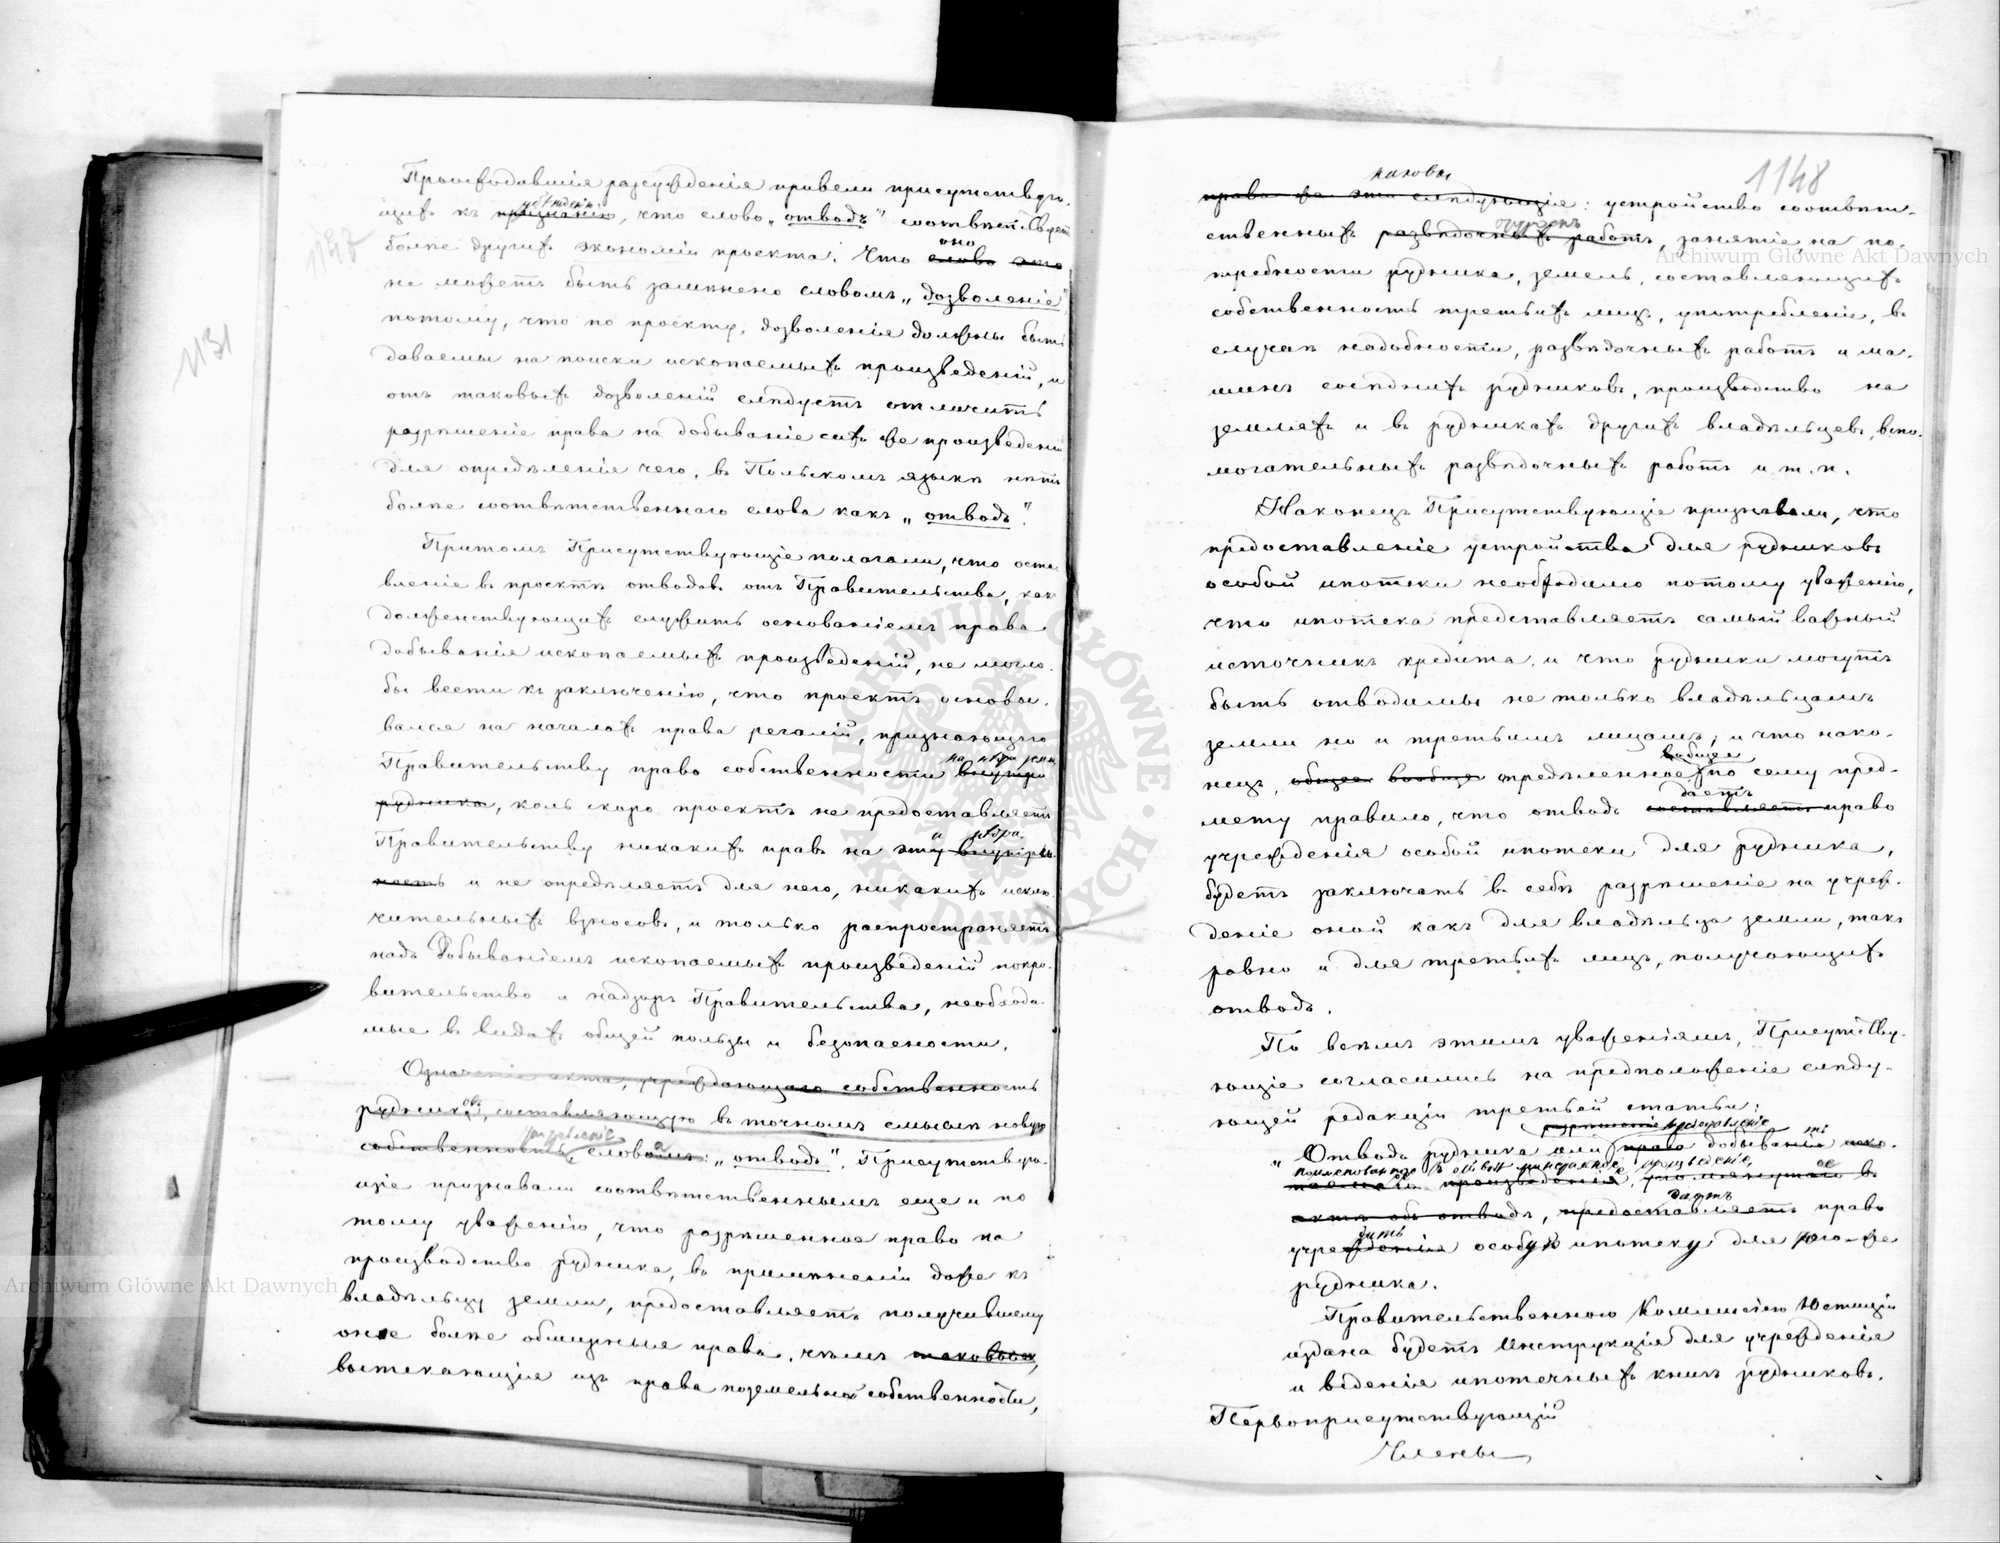 Происходившія разсужденія привели присутствую-
щихъ къ признанію убѣжденію, что слово „отводъ" соотвѣтствуетъ
болѣе другихъ экономіи проекта. Что слово это оно
не можетъ быть замѣнено словомъ „дозволеніе",
потому, что по проекту, дозволенія должны быть
даваемы на поиски ископаемыхъ произведеній, и
отъ таковыхъ дозволеній слѣдуетъ отличить
разрѣшеніе права на добываніе сихъ же произведеній
для опредѣленія чего, въ Польскомъ языкѣ нѣтъ
болѣе соотвѣтственнаго слова какъ „отводъ".
Притомъ Присутствующіе полагали, что оста-
вленіе въ проектѣ отводовъ отъ Правительства, какъ
долженствующихъ служить основаніемъ права
добыванія ископаемыхъ произведеній, не могло
бы вести къ заключенію, что проектъ основы-
вался на началахъ права регалій, признающаго
Правительству право собственности внутри на нѣдра земли
рудника, коль скоро проектъ не предоставляетъ
Правительству никакихъ правъ на эту внутрен- и нѣдра
ность и не опредѣляетъ для него, никакихъ исклю-
чительныхъ взносовъ, и только распространяетъ
надъ добываніемъ ископаемыхъ произведеній покро-
вительство и надзоръ Правительства, необходи-
мые въ видахъ общей пользы и безопасности.
Означеніе акта, учреждающаго собственность
рудниковъ, составляющую въ точномъ смыслѣ новую
собственность, словомъ: „отводъ", Присутствую-
щіе признавали соотвѣтственнымъ еще и по
тому уваженію, что разрѣшенное право на
производство рудника, въ примѣненіи даже къ
владѣльцу земли, предоставляетъ получившему
оное болѣе обширныя права, чѣмъ таковыя,
вытекающія изъ права поземельной собственности,
1147
1131
1148
каковы
права же эти слѣдующія: устройство соотвѣт-
ственныхъ развѣдочныхъ работъ, занятіе на по-
требности рудника, земель, составляющихъ
собственность третьихъ лицъ, употребленіе, въ
случаѣ надобности, развѣдочныхъ работъ и ма-
шинъ сосѣднихъ рудниковъ, производство на
земляхъ и въ рудникахъ другихъ владѣльцевъ, вспо-
могательныхъ развѣдочныхъ работъ и.т.п.
Наконецъ Присутствующіе признавали, что
предоставленіе устройства для рудниковъ
особой ипотеки необходимо потому уваженію,
что ипотека представляетъ самый важный
источникъ кредита, и что рудники могутъ
быть отводимы не только владѣльцамъ
земли но и третьимъ лицамъ; и что нако-
нецъ, общее вообще опредѣленное вобще по сему пред-
мету правило, что отводъ составляетъ даетъ право
учрежденія особой ипотеки для рудника,
будетъ заключать въ себѣ разрѣшеніе на учреж-
деніе оной какъ для владѣльца земли, такъ
равно и для третьихъ лицъ, получающихъ
отводъ.
По всѣмъ этимъ уваженіямъ, Присутству-
ющіе согласились на предположеніе слѣду-
ющей редакціи третьей статьи:
„Отводъ рудника или право разрѣшеніе добыванія иско-
паемаго произведенія, упомянутаго въ
актѣ объ отводѣ, предоставляетъ даетъ право
учрежденія особую ипотеку для того-же
рудника.
Правительственною Коммисіею Юстиціи
издана будетъ Инструкція для учрежденія
и веденія ипотечныхъ книгъ рудниковъ.
Первоприсутствующій
Члены
Archiwum Główne Akt Dawnych
Archiwum Główne Akt Dawnych
ARCHIWUM GŁÓWNE AKT DAWNYCH